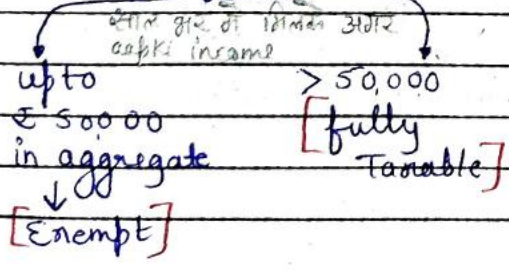 साल भर में मिलाके अगर
aapki income
upto
₹ 50000
in aggregate
[Exempt]
> 50,000
[fully
Taxable]